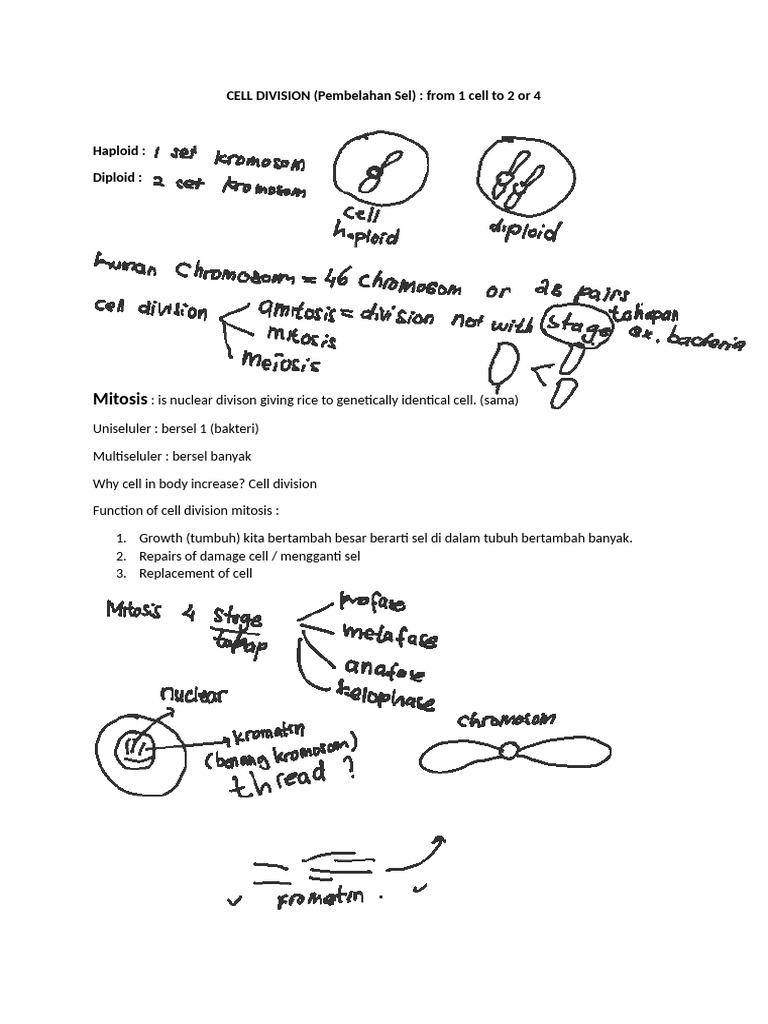 CELL DIVISION (Pembelahan Sel) : from 1 cell to 2 or 4
Haploid : 1 set kromosom
Diploid : 2 set kromosom
cell haploid
diploid
human Chromosom = 46 chromosom or 23 pairs
cell division
amitosis = division not with stage
tahapan
ex. bacteria
mitosis
meiosis
Mitosis : is nuclear divison giving rice to genetically identical cell. (sama)
Uniseluler : bersel 1 (bakteri)
Multiseluler : bersel banyak
Why cell in body increase? Cell division
Function of cell division mitosis :
1. Growth (tumbuh) kita bertambah besar berarti sel di dalam tubuh bertambah banyak.
2. Repairs of damage cell / mengganti sel
3. Replacement of cell
Mitosis 4 stage
tahap
profase
metafase
anafase
telophase
nuclear
kromatin
(benang kromosom)
thread ?
chromosom
kromatin .